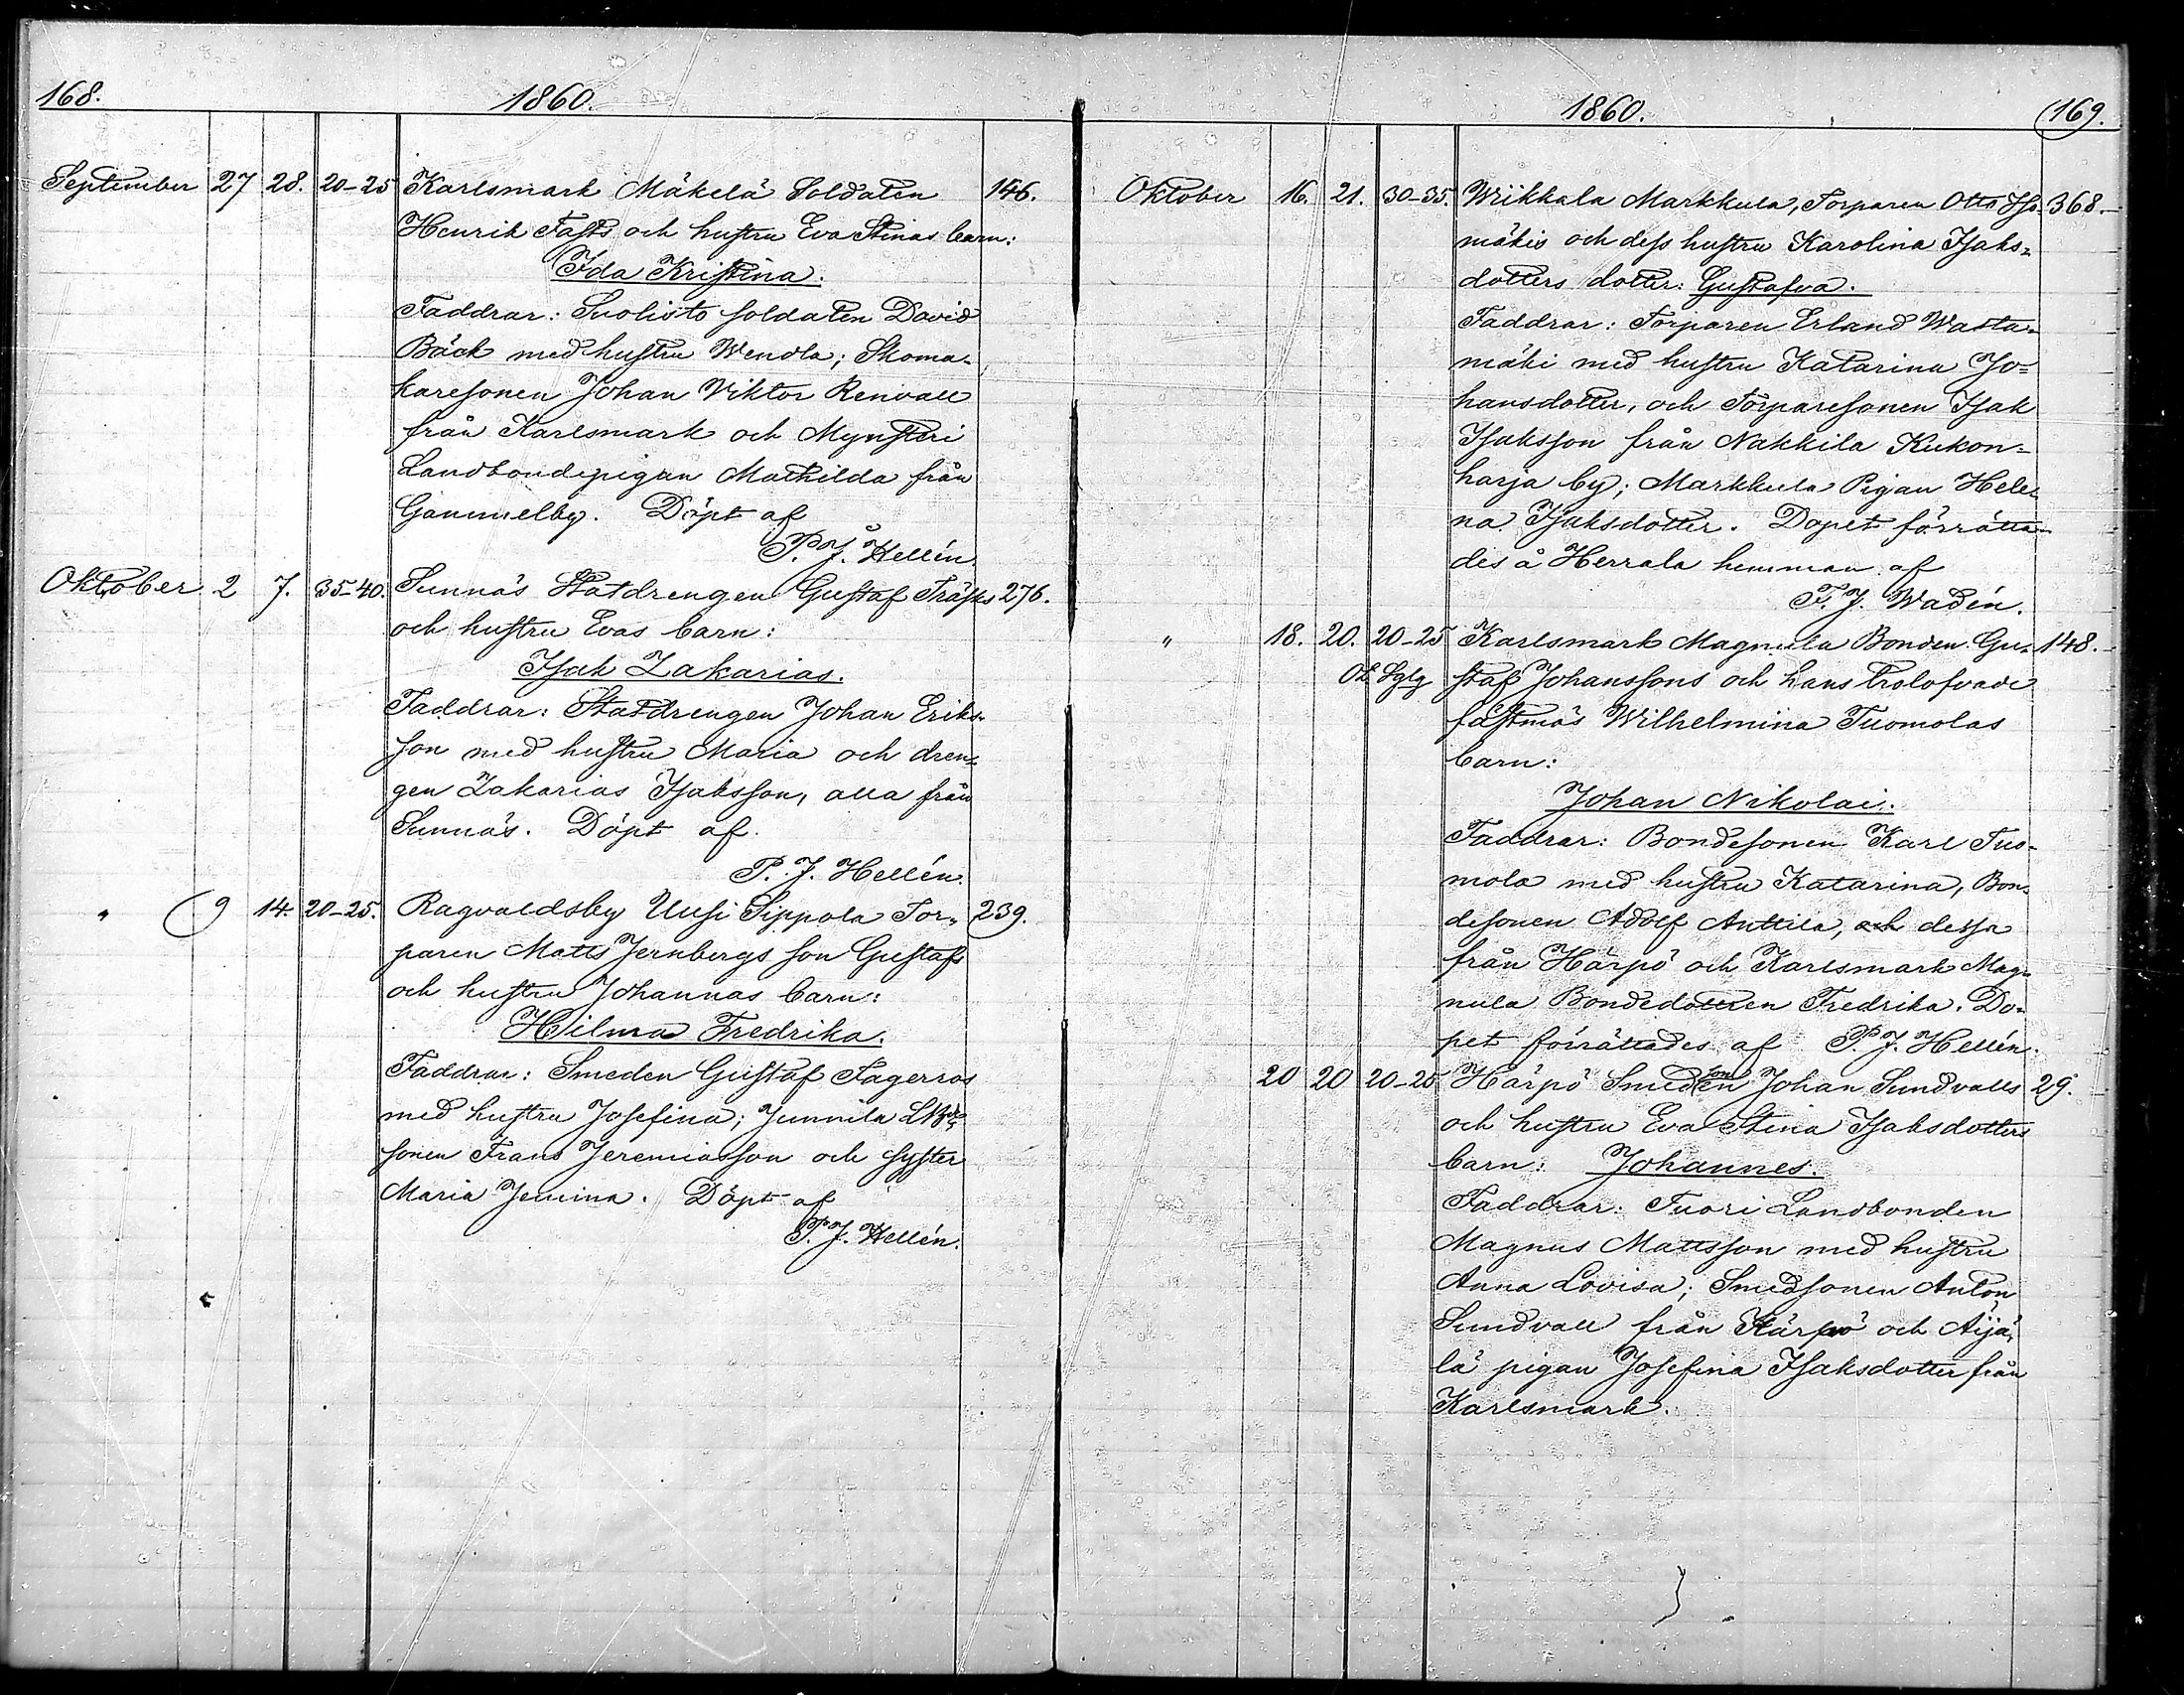 168.
1860.
September 27 28. 20-25 Karlsmark Mäkelä Soldaten 146.
Henrik Fasts och hustru Eva Stinas barn:
Ida Kristina.
Faddrar: Suolisto soldaten David
Bäck med hustru Wendla; Skoma-
karesonen Johan Viktor Renvall
från Karlsmark och Mynsteri
Landbondepigan Mathilda från
Gammelby. Döpt af
P. J. Hellén.
Oktober 2 7. 35-40. Sunnäs Statdrengen Gustaf Träsks 276.
och hustru Evas barn:
Isak Zakarias.
Faddrar: Statdrengen Johan Eriks-
son med hustru Maria och dren-
gen Zakarias Isaksson, alla från
Sunnäs. Döpt af
P. J. Hellén.
" 9 14. 20-25. Ragvaldsby Uusi Sippola Tor- 239.
paren Matts Jernbergs son Gustafs
och hustru Johannas barn:
Hilma Fredrika.
Faddrar: Smeden Gustaf Fagerros
med hustru Josefina; Junnila LBde-
sonen Frans Jeremiasson och syster
Maria Jemina. Döpt af
P. J. Hellén.
1860.
169.
Oktober 16. 21. 30-35. Wiikkala Markkula, Torparen Otto Iso- 368.
mäkis och dess hustru Karolina Isaks-
dotters dotter: Gustafva.
Faddrar: Torparen Erland Wasta-
mäki med hustru Katarina Jo-
hansdotter, och Torparesonen Isak
Isaksson från Nakkila Kukon-
harja by; Markkula Pigan Hele-
na Isaksdotter. Dopet förrätta-
des å Herrala hemman af
F. J. Wadén.
" 18. 20. 20-25 Karlsmark Magnula Bonden Gu- 148.
staf Johanssons och hans trolofvade
fästmös Wilhelmina Tuomolas
barn:
Johan Nikolai.
Faddrar: Bondesonen Karl Tuo-
mola med hustru Katarina, Bon-
desonen Adolf Anttila, och dessa
från Härpö och Karlsmark Mag-
nula Bondedottren Fredrika. Do-
pet förrättades af P. J. Hellén.
20 20 20-25 Härpö Smedsonen Johan Sundvalls 29.
och hustru Eva Stina Isaksdotters
barn: Johannes.
Faddrar: Tuori Landbonden
Magnus Mattsson med hustru
Anna Lovisa; Smedsonen Anton
Sundvall från Härpö och Äijä-
lä pigan Josefina Isaksdotter från
Karlsmark.